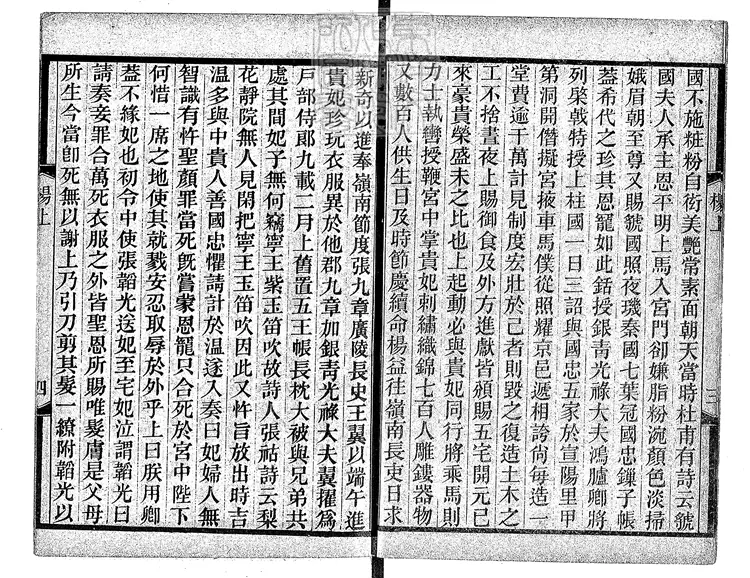 國不施粧粉自衒美艷常素面朝天當時杜甫有詩云虢
國夫人承主恩平明上馬入宮門卻嫌脂粉涴顏色淡掃
娥眉朝至尊又賜虢國照夜璣秦國七葉冠國忠鏁子帳
葢希代之珍其恩寵如此銛授銀青光祿大夫鴻臚卿將
列棨戟特授上柱國一日三詔與國忠五家於宣陽里甲
第洞開僭擬宮掖車馬僕從照耀京邑遞相誇尚每造一
堂費逾千萬計見制度宏壯於己者則毀之復造土木之
工不捨晝夜上賜御食及外方進獻皆頒賜五宅開元已
來豪貴榮盛未之比也上起動必與貴妃同行將乘馬則
力士執轡授鞭宮中掌貴妃刺繡織錦七百人雕鏤器物
又數百人供生日及時節慶續命楊益往嶺南長吏日求
楊上
三
新奇以進奉嶺南節度張九章廣陵長史王翼以端午進
貴妃珍玩衣服異於他郡九章加銀青光祿大夫翼擢為
戶部侍郎九載二月上舊置五王帳長枕大被與兄弟共
處其間妃子無何竊寧王紫玉笛吹故詩人張祜詩云梨
花靜院無人見閑把寧王玉笛吹因此又忤旨放出時吉
溫多與中貴人善國忠懼請計於溫遂入奏曰妃婦人無
智識有忤聖顏罪當死既嘗蒙恩寵只合死於宮中陛下
何惜一席之地使其就戮安忍取辱於外乎上曰朕用卿
葢不緣妃也初令中使張韜光送妃至宅妃泣謂韜光曰
請奏妾罪合萬死衣服之外皆聖恩所賜唯髮膚是父母
所生今當卽死無以謝上乃引刀剪其髮一繚附韜光以
楊上
四